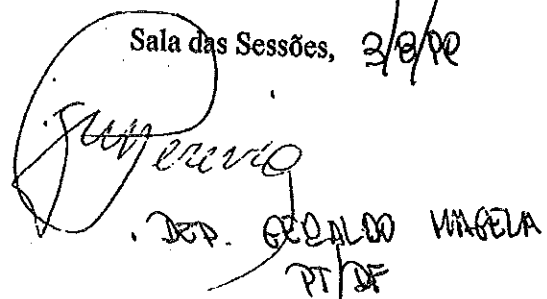 Sala das Sessões, 3/8/99
DEP. GERALDO MAGELA
PT/DF